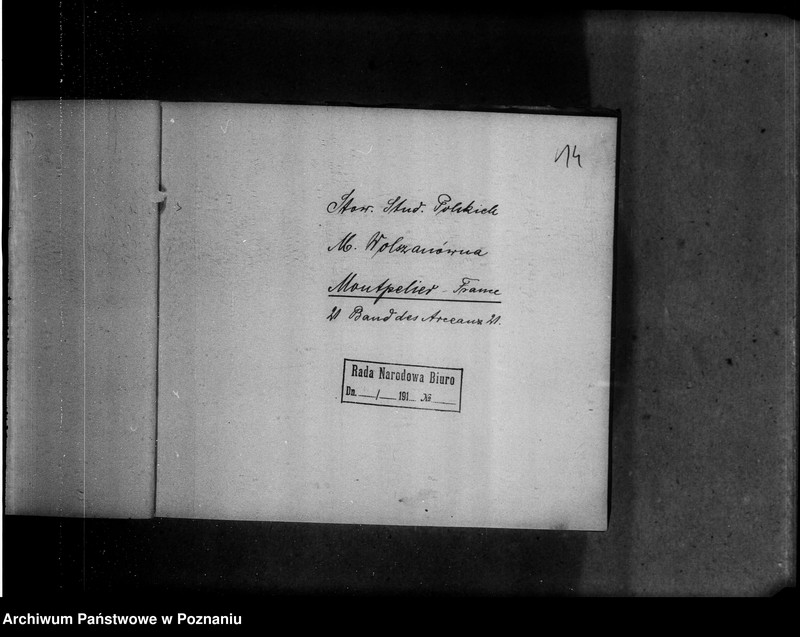 14
Stow. Stud. Polskich
M. Wolszanówna
Montpelier - France
21 Baud des Arceaux 21.
Rada Narodowa Biuro
Dn. ___/___ 191__ № ___
Archiwum Państwowe w Poznaniu